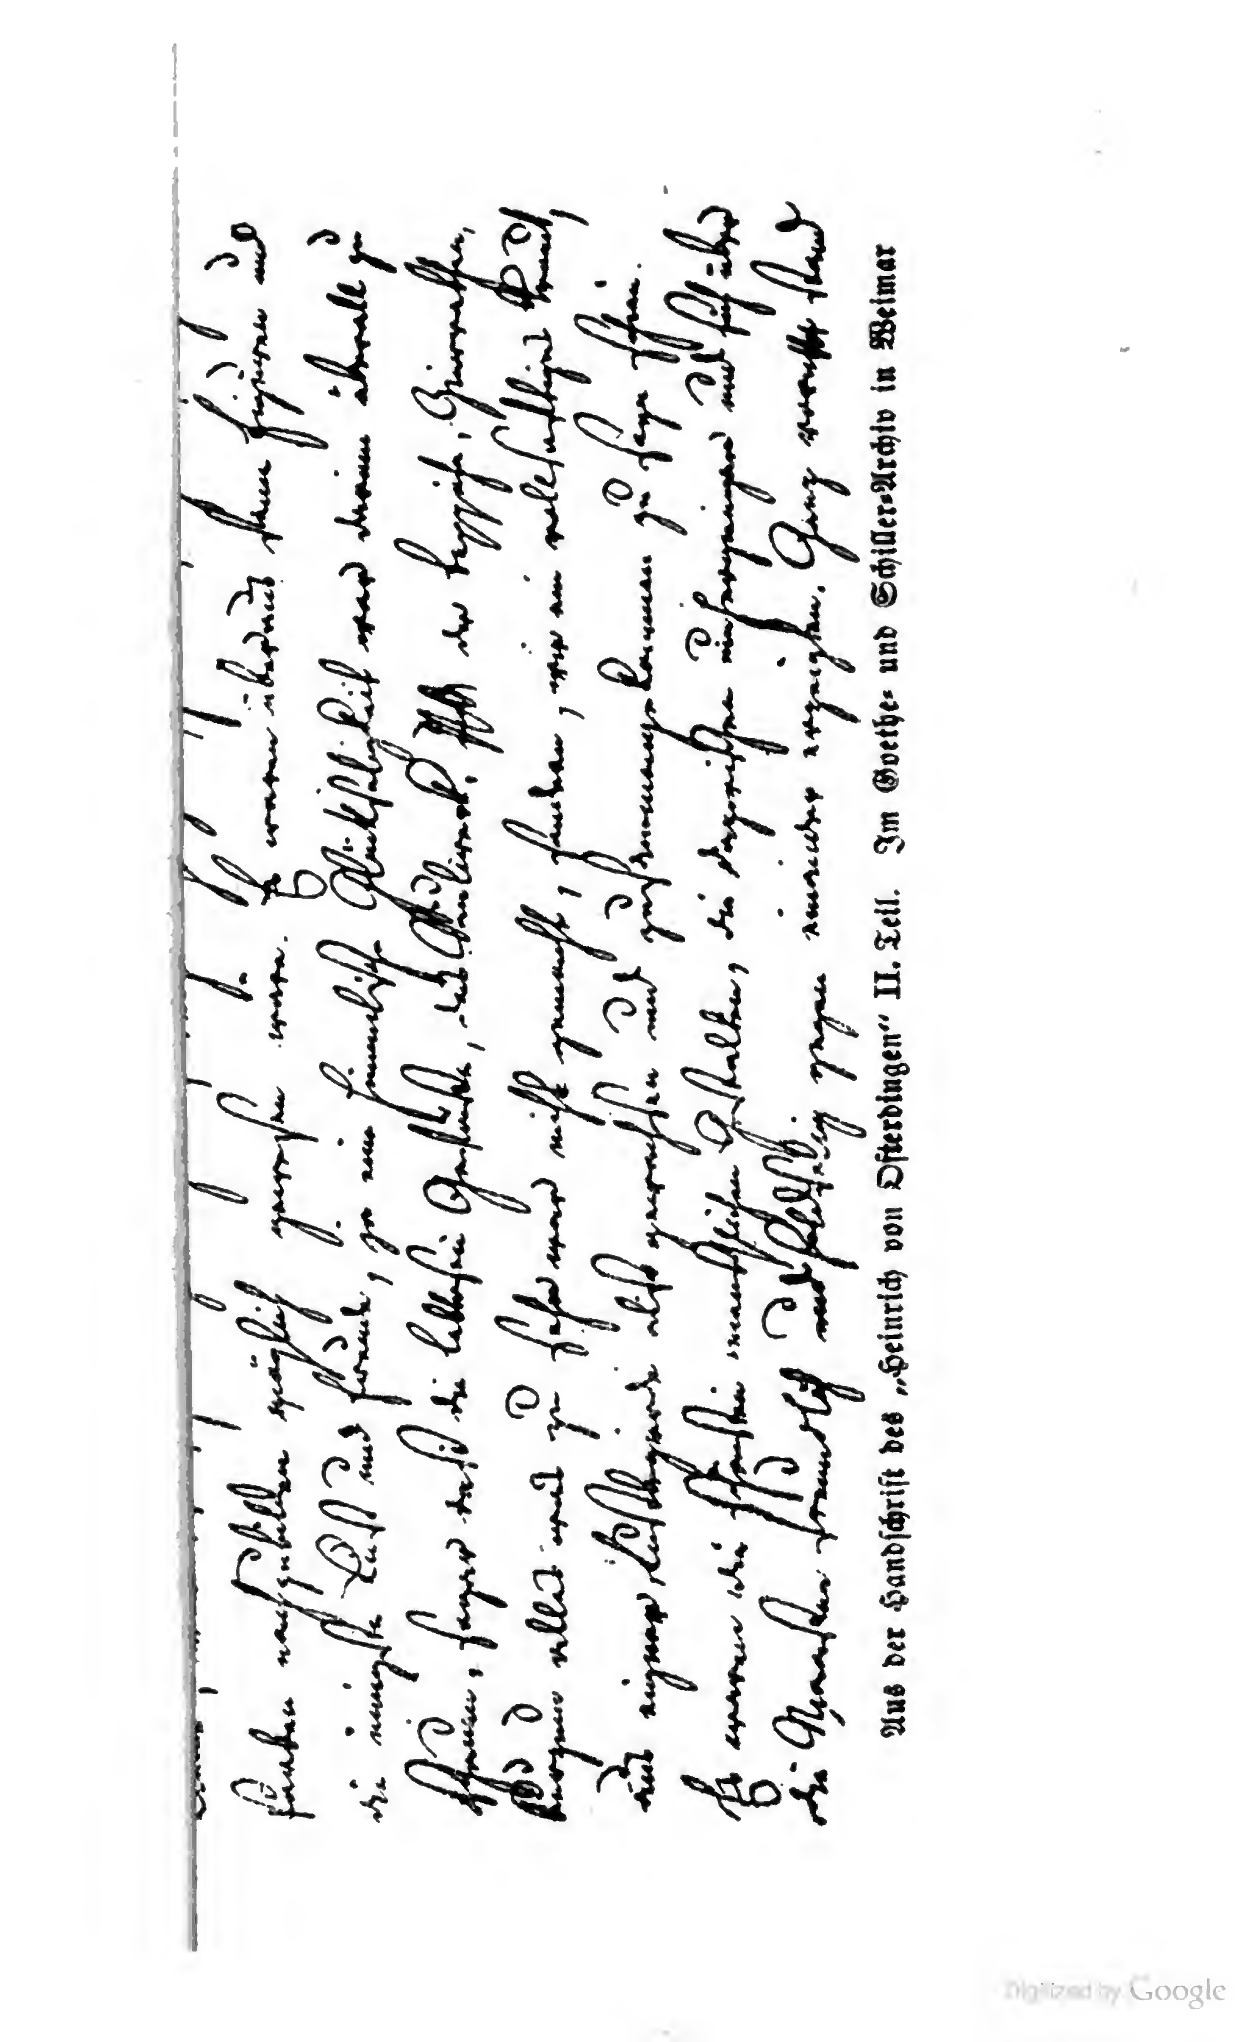 Farben nachzubilden möglich gewesen wäre. Sie waren überaus schön figurirt und
die innigste Lust und Freude, ja eine himmlische Glückseligkeit war darinn überall zu
schauen, sogar daß die leblosen Gefäße, das Säulwerk, die Teppiche, Zierrathen,
kurzum alles was zu sehen war nicht gemacht, sondern, wie ein vollsaftiges Kraut,
aus eigner Lustbegierde also gewachsen und zusammengekommen zu seyn schien.
Es waren die schönsten menschlichen Gestalten, die dazwischen umhergiengen und sich über
die Maaßen freundlich und holdselig gegen einander erzeigten. Ganz vorn stand
Aus der Handschrift des „Heinrich von Ofterdingen“ II. Teil. Im Goethe- und Schiller-Archiv in Weimar
Digitized by Google